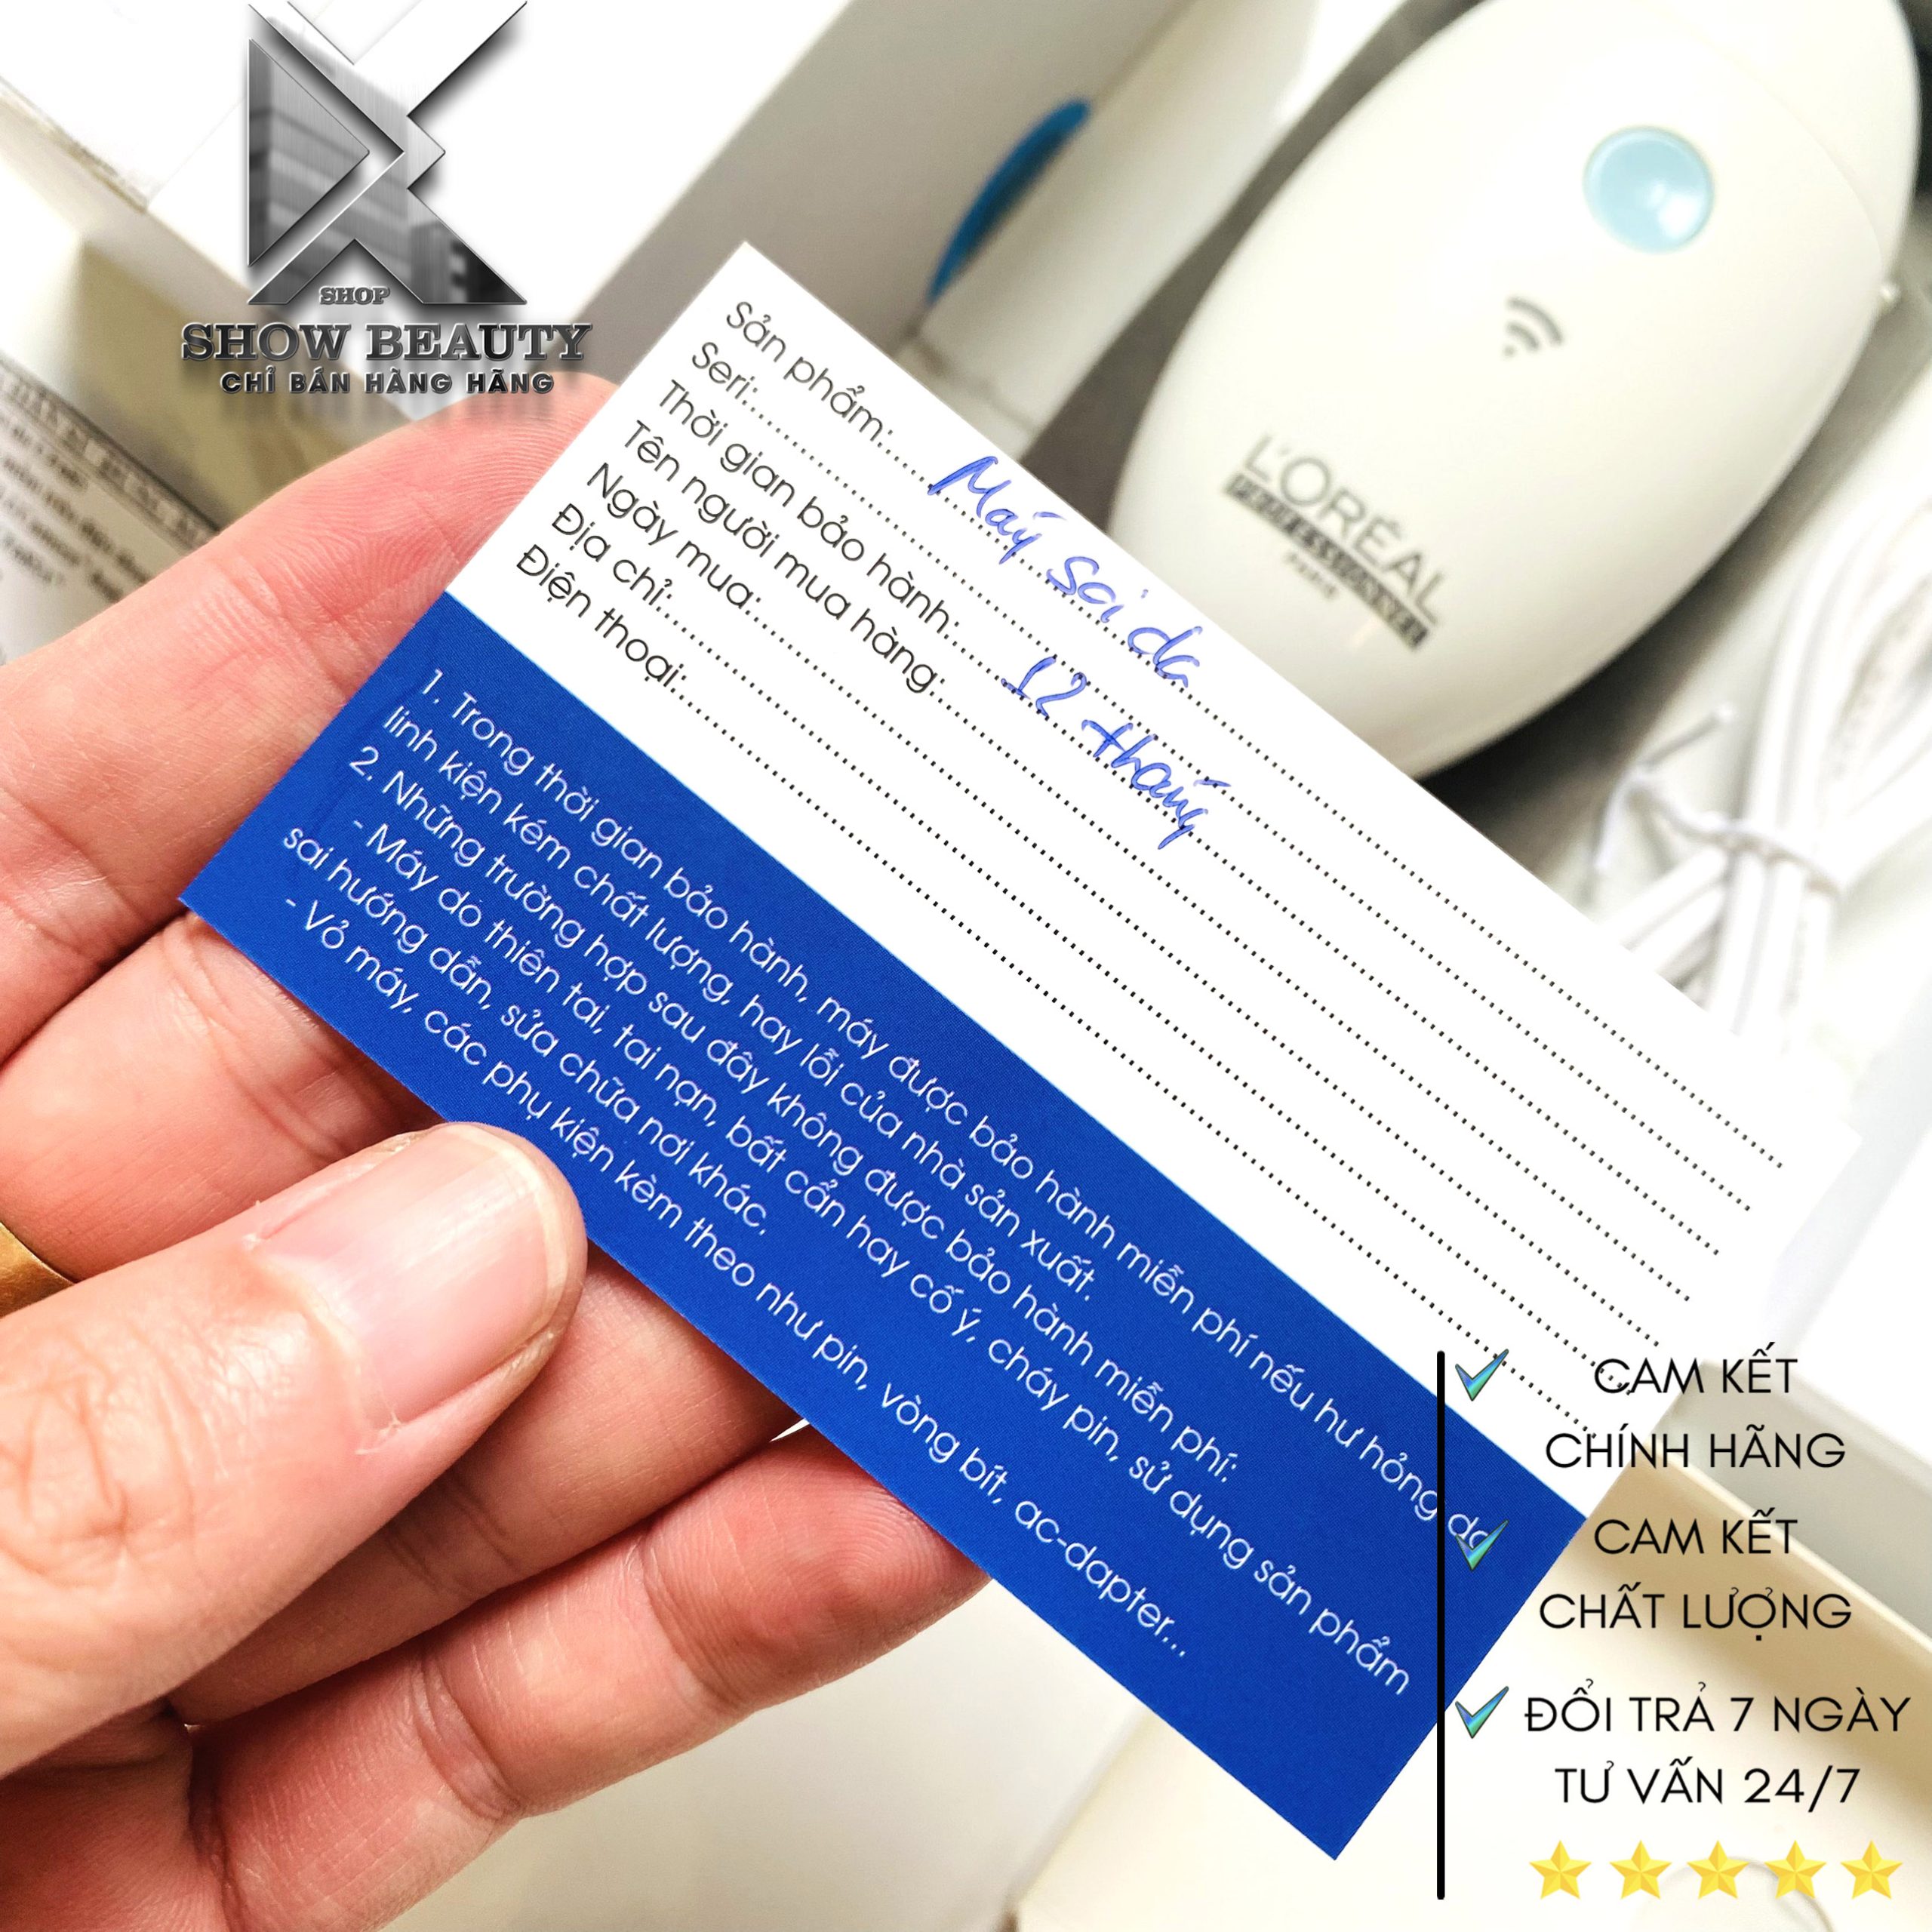 SHOP
SHOW BEAUTY
CHỈ BÁN HÀNG HÃNG
L'ORÉAL
PROFESSIONNEL
PARIS
Sản phẩm: Máy soi da
Seri:
Thời gian bảo hành: 12 tháng
Tên người mua hàng:
Ngày mua:
Địa chỉ:
Điện thoại:
1. Trong thời gian bảo hành, máy được bảo hành miễn phí nếu hư hỏng do
linh kiện kém chất lượng, hay lỗi của nhà sản xuất.
2. Những trường hợp sau đây không được bảo hành miễn phí:
- Máy do thiên tai, tai nạn, bất cẩn hay cố ý, cháy pin, sử dụng sản phẩm
sai hướng dẫn, sửa chữa nơi khác,
- Vỏ máy, các phụ kiện kèm theo như pin, vòng bít, ac-dapter...
CAM KẾT
CHÍNH HÃNG
CAM KẾT
CHẤT LƯỢNG
ĐỔI TRẢ 7 NGÀY
TƯ VẤN 24/7